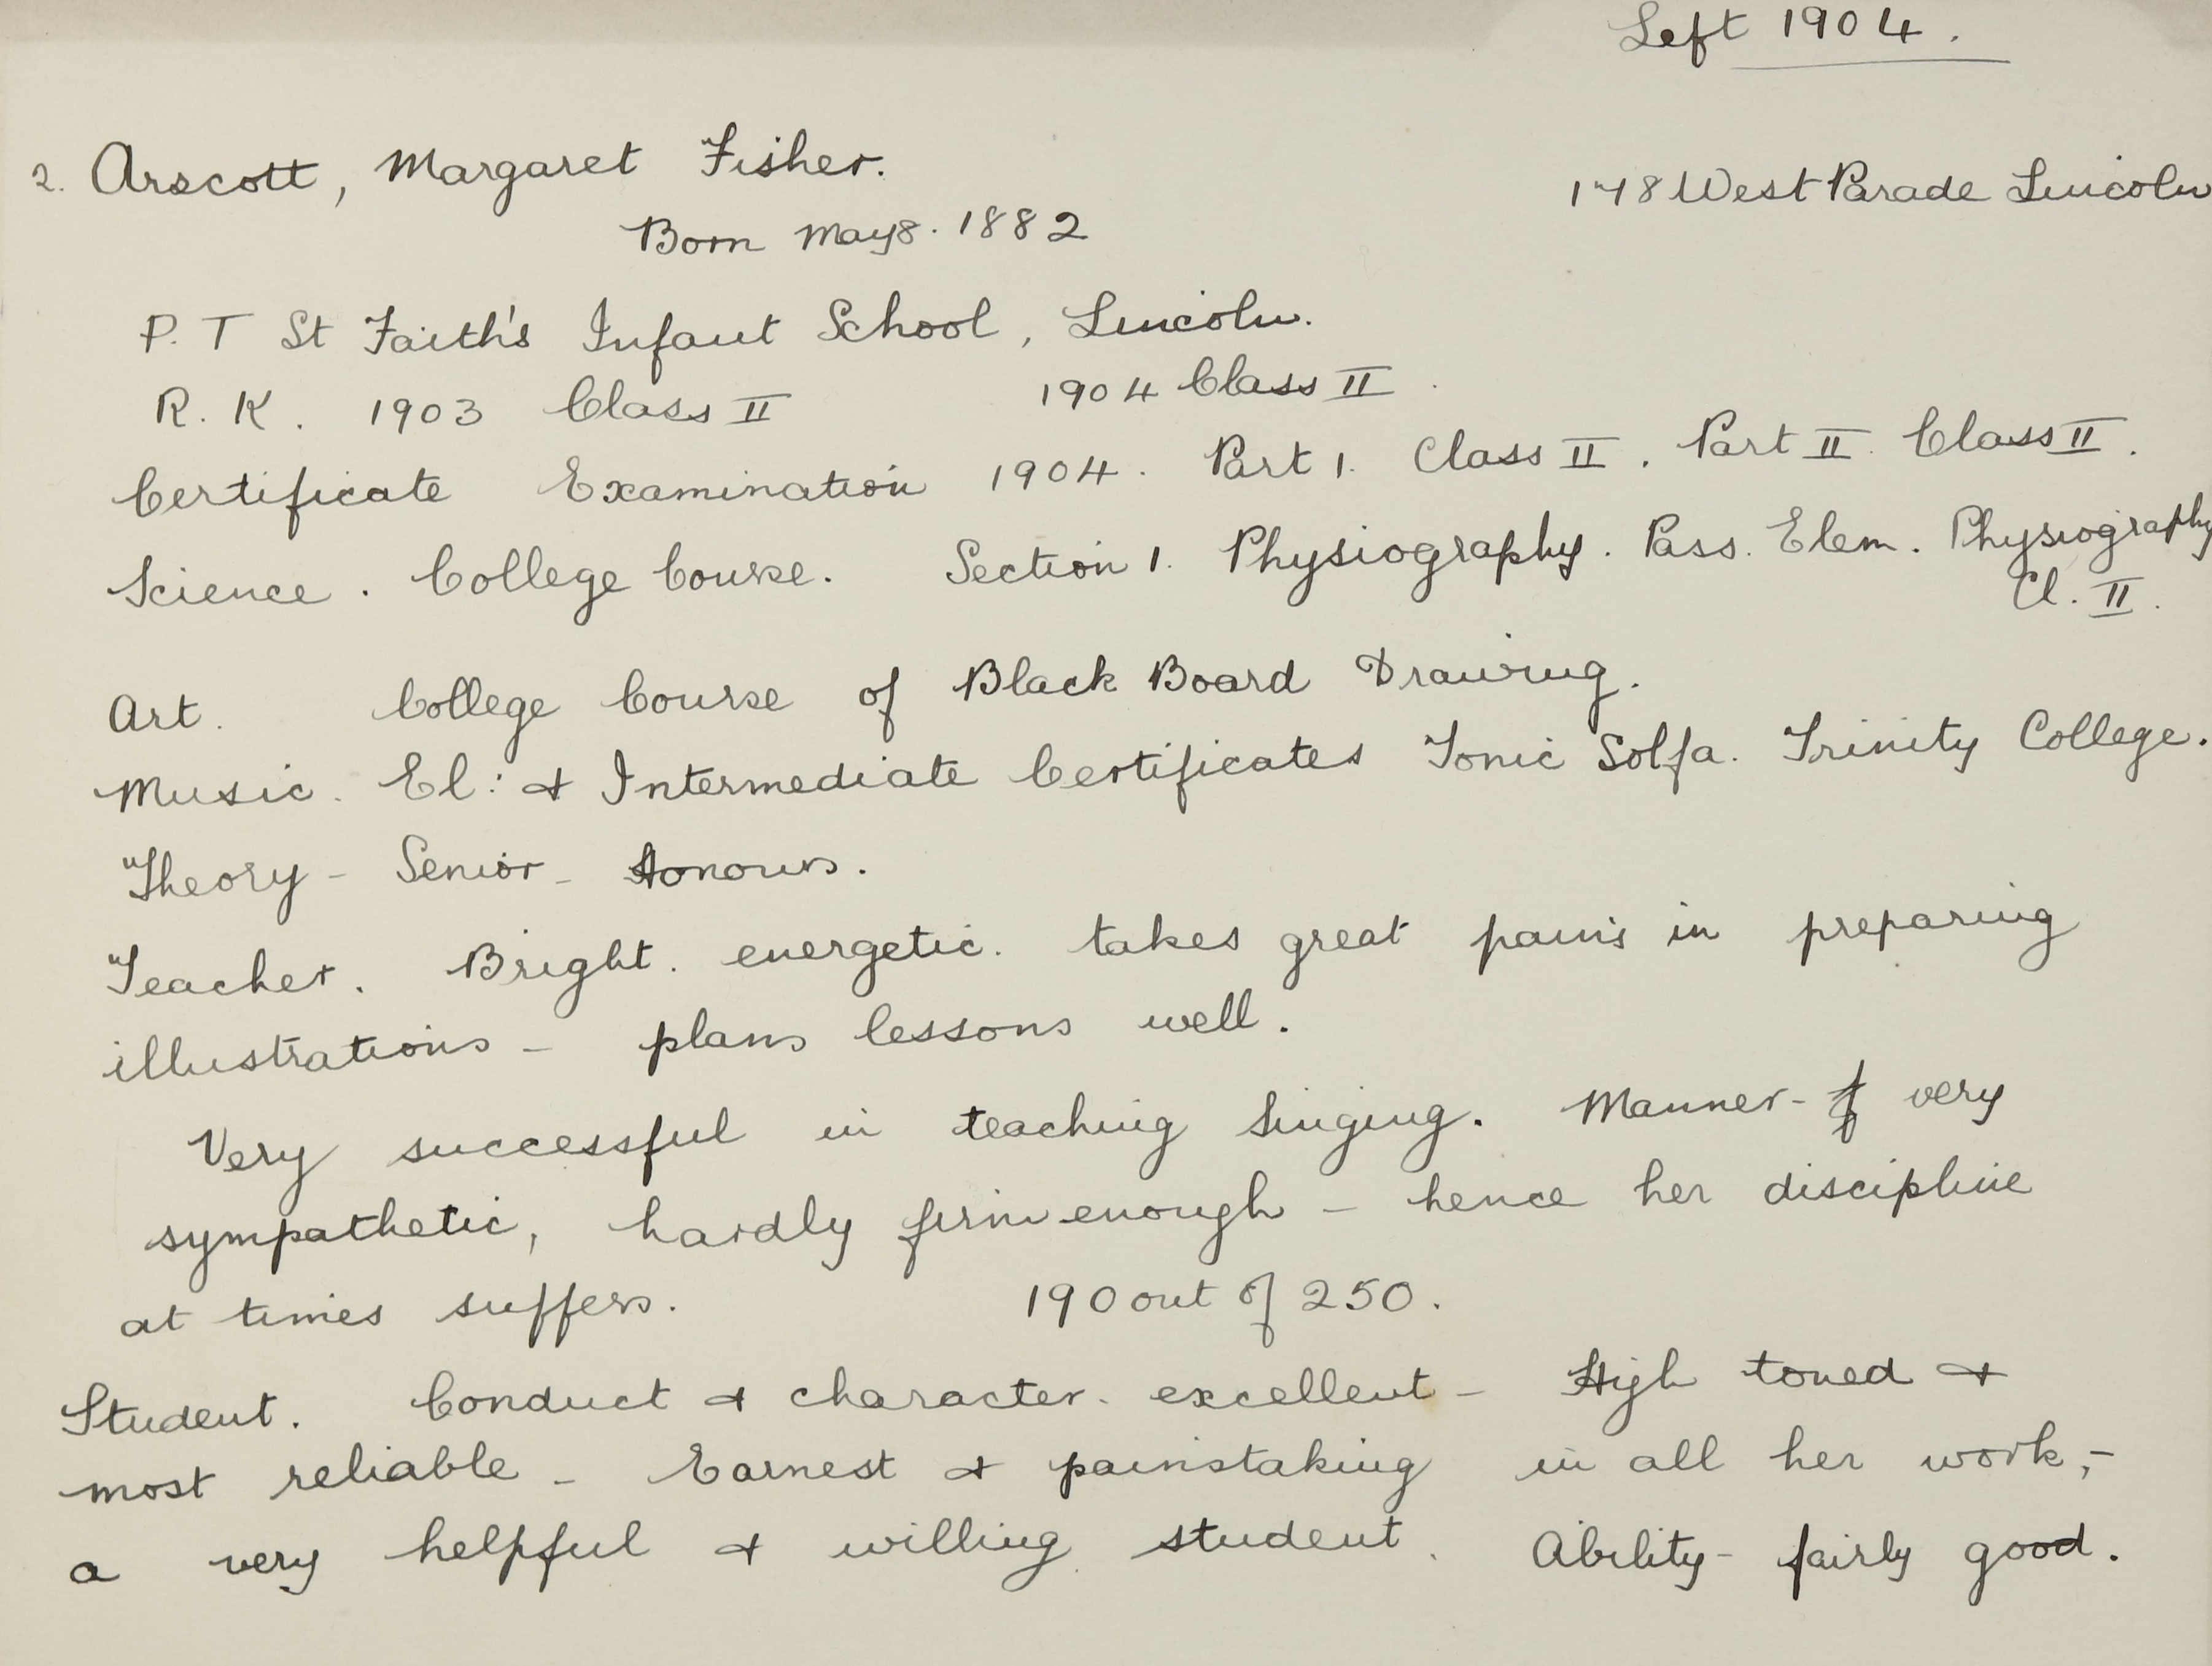 Left 1904.
2. Arscott, Margaret Fisher.
148 West Parade Lincoln
Born May 8. 1882
P. T St Faith's Infant School, Lincoln.
R. K. 1903 Class II 1904 Class II.
Certificate Examination 1904. Part 1. Class II. Part II. Class II.
Science. College Course. Section 1. Physiography. Pass. Elem. Physiography
Cl. II.
Art. College Course of Black Board Drawing.
Music. El: & Intermediate Certificates Tonic Solfa. Trinity College.
Theory - Senior - Honours.
Teacher. Bright. energetic. takes great pains in preparing
illustrations - plans lessons well.
Very successful in teaching Singing. Manner - very
sympathetic, hardly firm enough - hence her discipline
at times suffers. 190 out of 250.
Student. Conduct & character. excellent - High toned &
most reliable - Earnest & painstaking in all her work, -
a very helpful & willing student. Ability - fairly good.